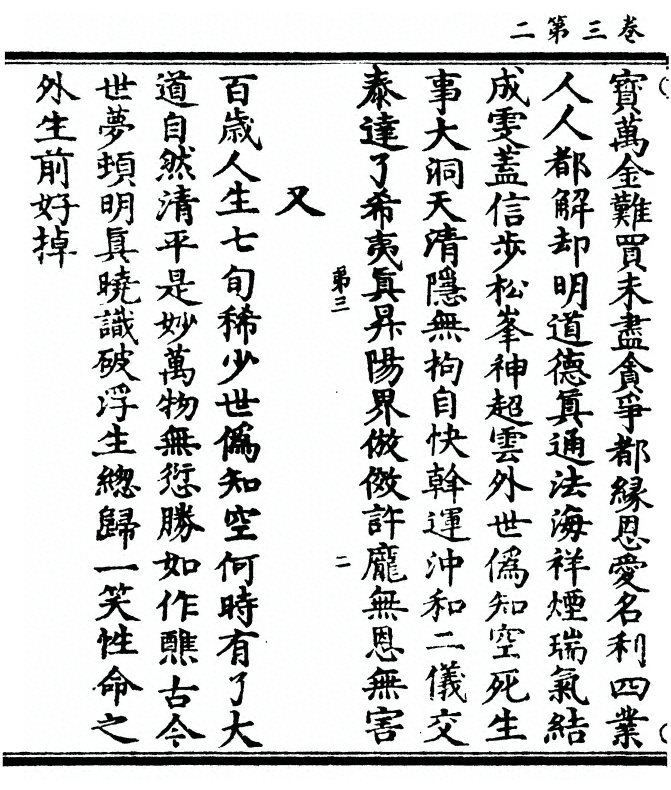 卷三第二
寳萬金難買未盡貪爭都緣恩愛名利四業
人人都解却明道德眞通法海祥煙瑞氣結
成雯蓋信步松峯神超雲外世僞知空死生
事大洞天清隱無拘自快斡運沖和二儀交
泰達了希夷眞昇陽界倣傚許龐無恩無害
第三
二
又
百歲人生七旬稀少世僞知空何時有了大
道自然清平是妙萬物無愆勝如作醮古今
世夢頓明眞曉識破浮生總歸一笑性命之
外生前好掉